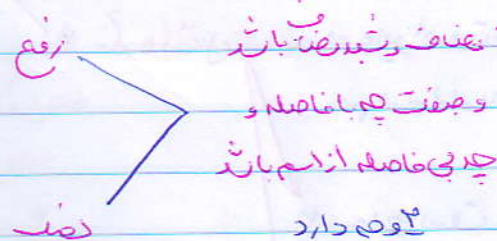 مضاف و شبه مضاف باشد
رفع
و صفت چه با فاصله و
چه بی فاصله از اسم باشد
نصب
۲ وجه دارد